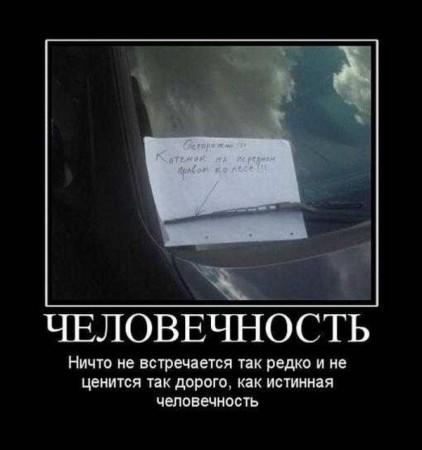 Осторожно!!!
Котёнок на переднем
правом колесе!!!
ЧЕЛОВЕЧНОСТЬ
Ничто не встречается так редко и не
ценится так дорого, как истинная
человечность